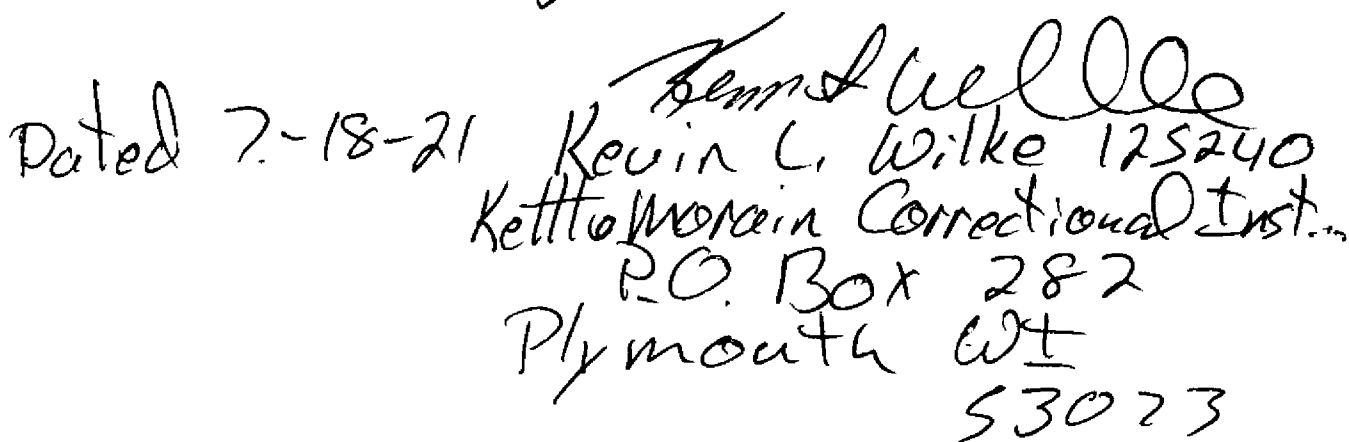 Dated 7-18-21 Kevin L. Wilke 125240
Kettle Morain Correctional Inst...
P.O. Box 282
Plymouth WI
53073